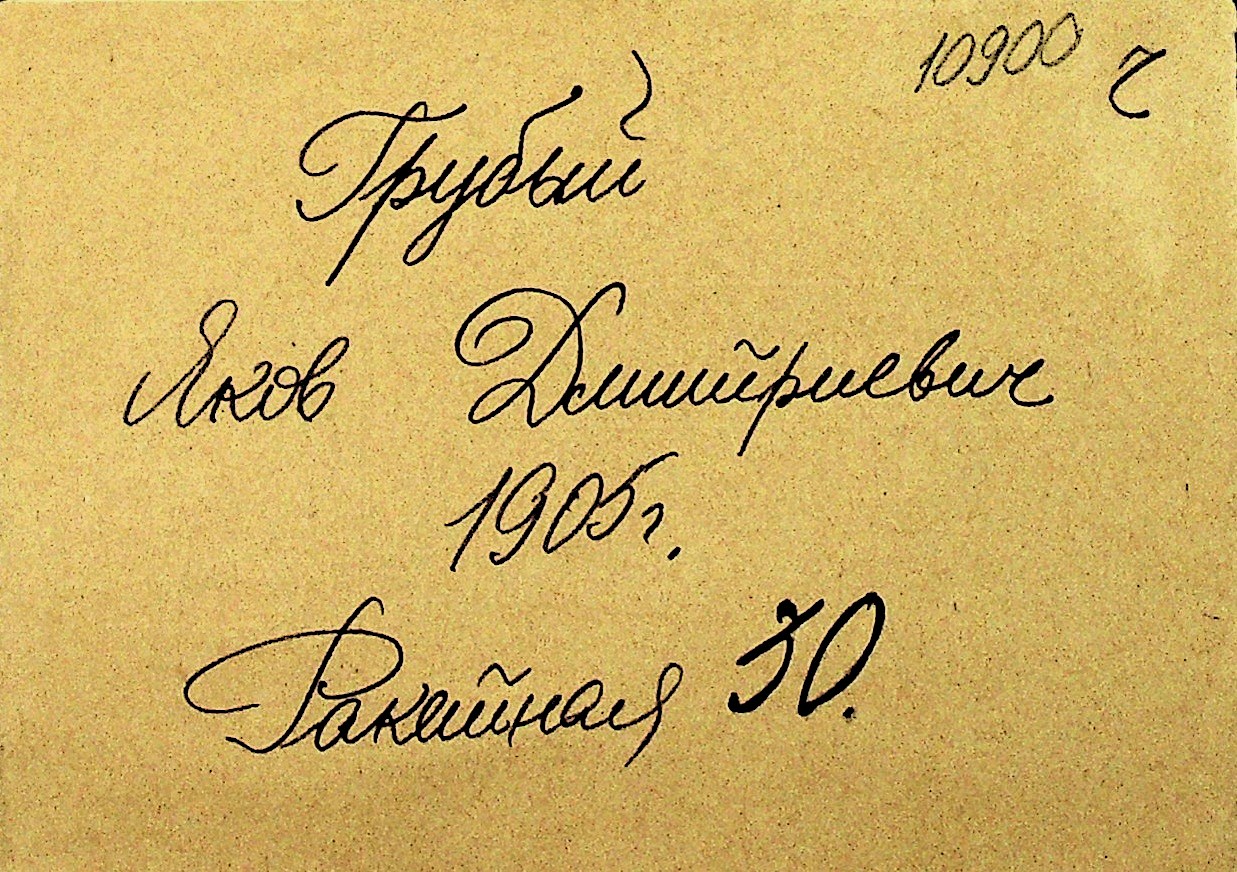 10900 ч
Грубый
Яков Дмитриевич
1905г.
Ракитная 30.